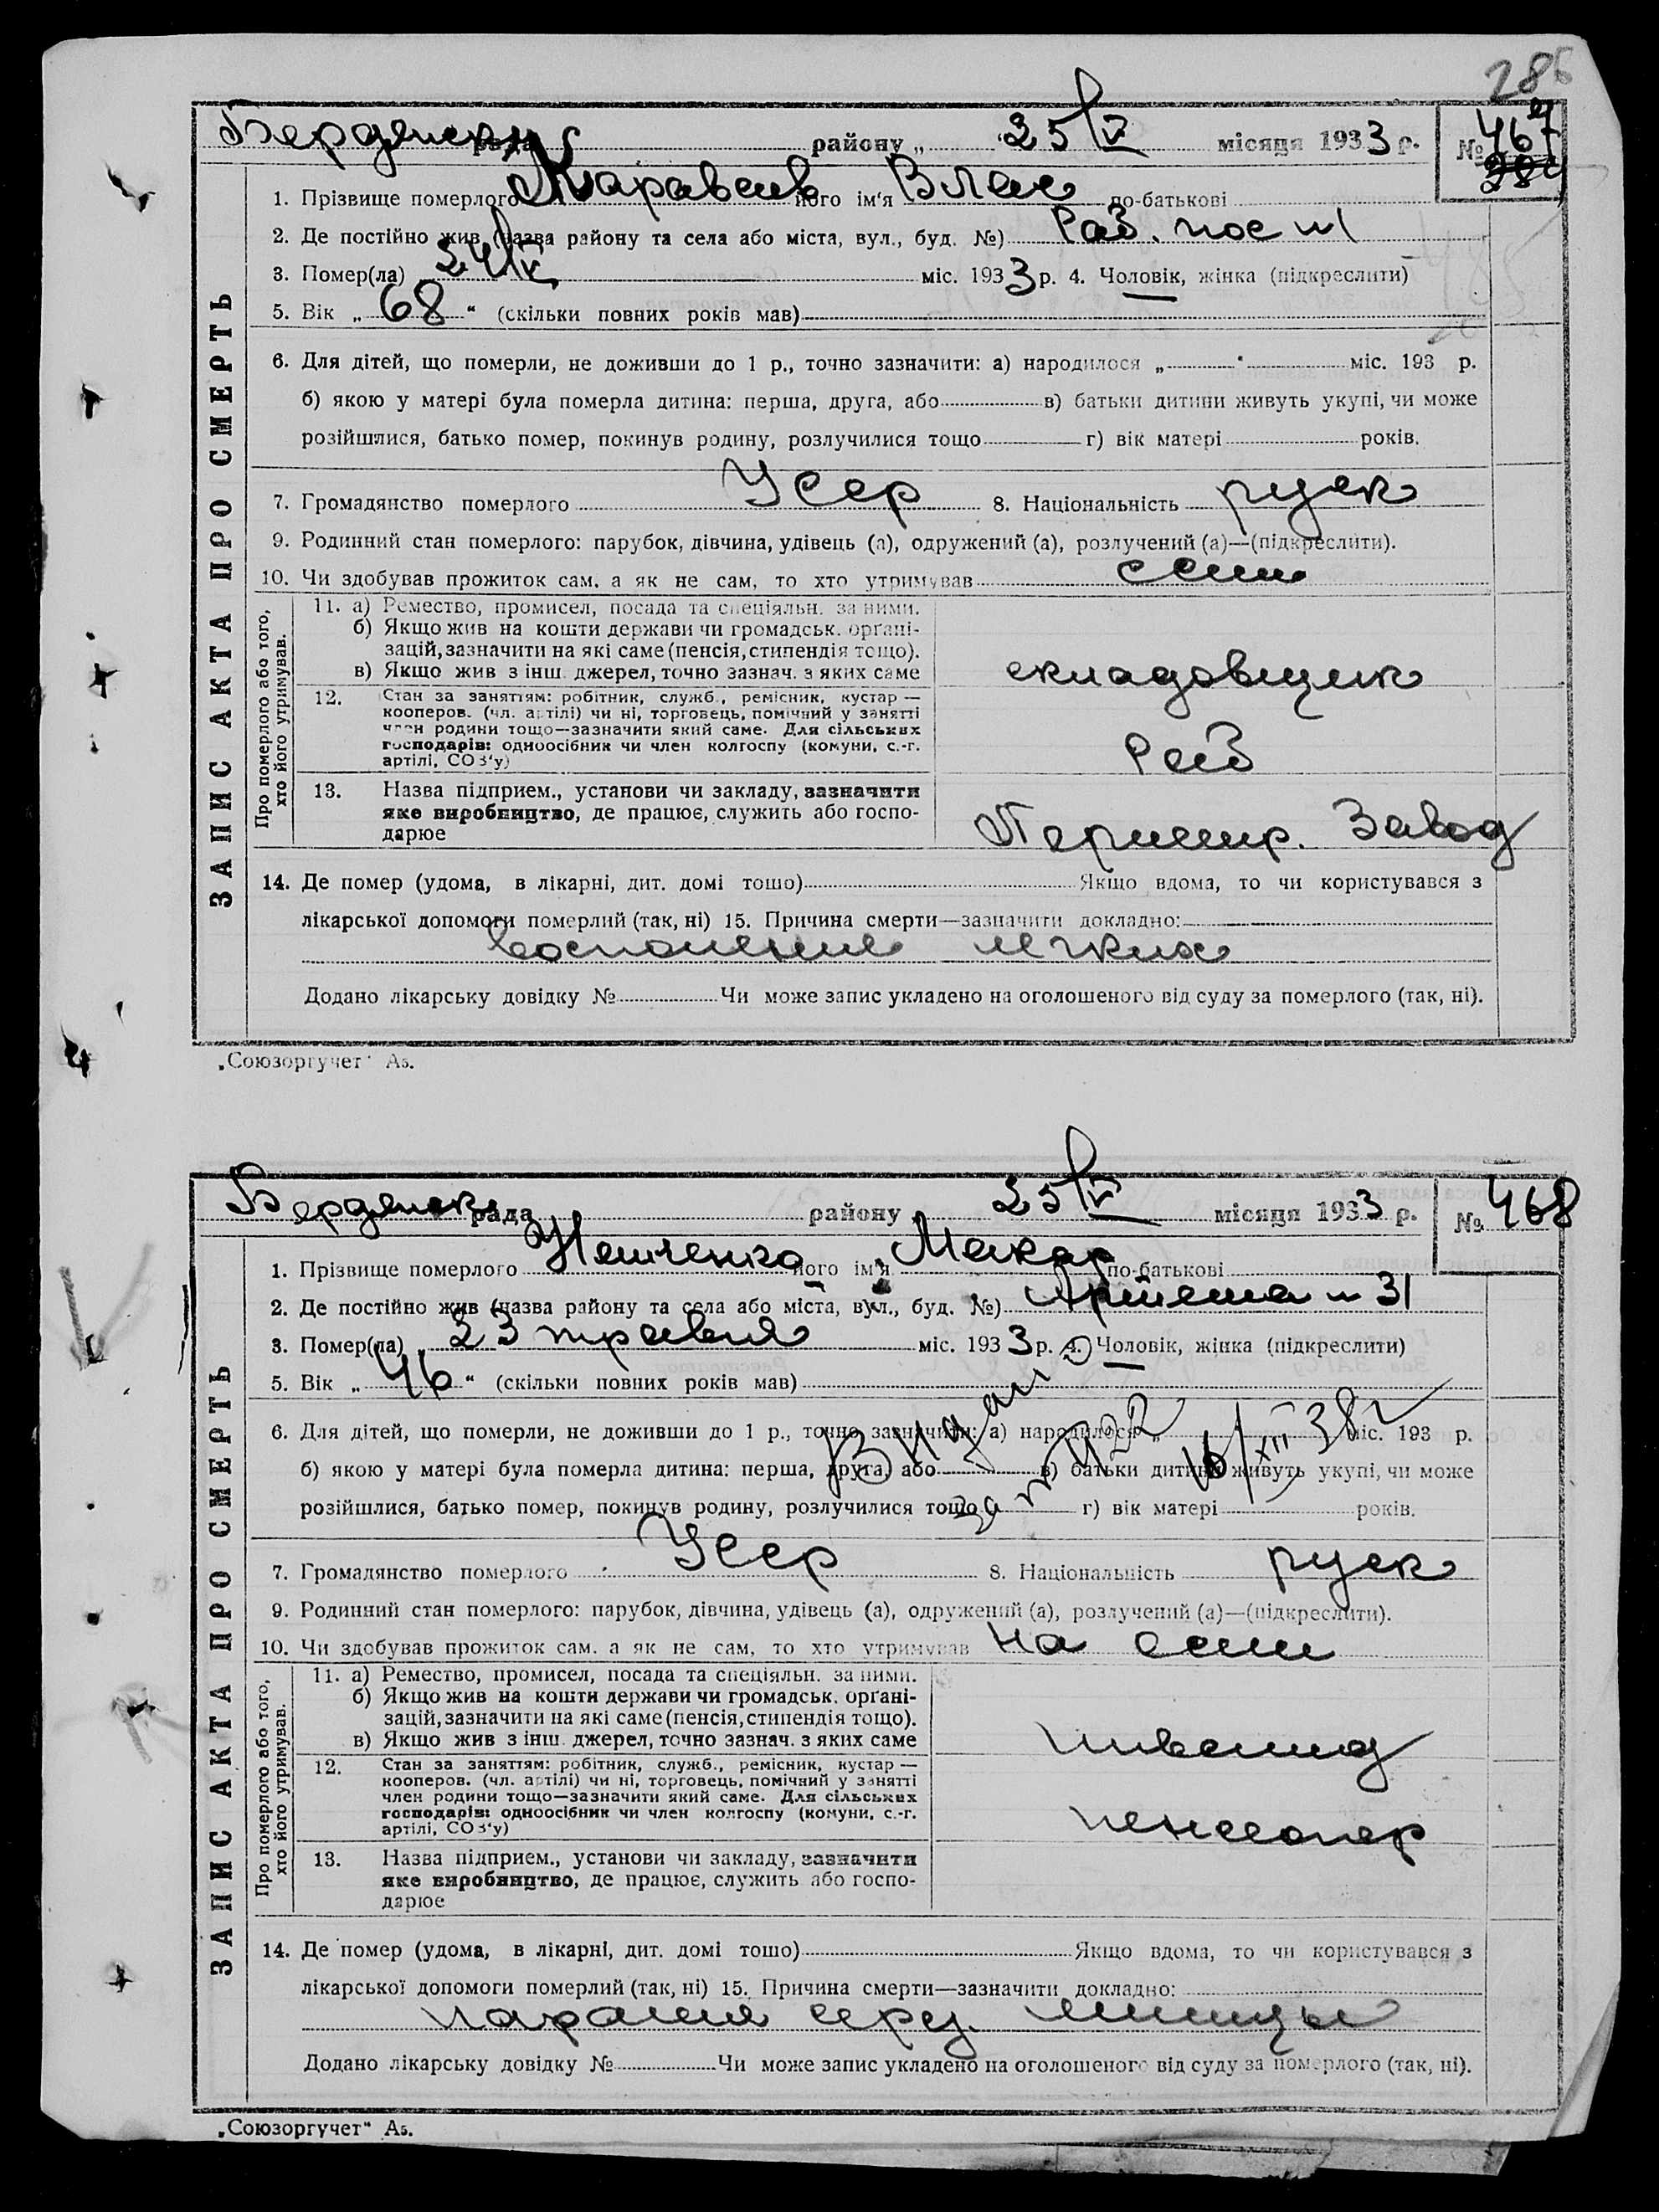 286
Бердянськ рада району „ 25/V місяця 1933 р. № 467
1. Прізвище померлого Караваев його ім'я Влас по-батькові
2. Де постійно жив (назва району та села або міста, вул., буд. №) Раб. пос
3. Помер(ла) 24/V міс. 1933 р. 4. Чоловік, жінка (підкреслити)
5. Вік „ 68 “ (скільки повних років мав)
6. Для дітей, що померли, не доживши до 1 р., точно зазначити: а) народилося „ “ міс. 193 р.
б) якою у матері була померла дитина: перша, друга, або в) батьки дитини живуть укупі, чи може
розійшлися, батько помер, покинув родину, розлучилися тощо г) вік матері років.
7. Громадянство померлого Усср 8. Національність руск
9. Родинний стан померлого: парубок, дівчина, удівець (а), одружений (а), розлучений (а)—(підкреслити).
10. Чи здобував прожиток сам. а як не сам, то хто утримував сам
ЗАПИС АКТА ПРО СМЕРТЬ
Про померлого або того,
хто його утримував.
11. а) Ремество, промисел, посада та спеціяльн. за ними.
б) Якщо жив на кошти держави чи громадськ. органі-
зацій, зазначити на які саме (пенсія, стипендія тощо).
в) Якщо жив з інш. джерел, точно зазнач. з яких саме
складовщик
12. Стан за заняттям: робітник, служб., ремісник, кустар —
кооперов. (чл. артілі) чи ні, торговець, помічний у занятті
член родини тощо—зазначити який саме. Для сільських
господарів: одноосібник чи член колгоспу (комуни, с.-г.
артілі, СОЗ'у)
Раб
13. Назва підприєм., установи чи закладу, зазначити
яке виробництво, де працює, служить або госпо-
дарюе
Завод
14. Де помер (удома, в лікарні, дит. домі тошо) Якщо вдома, то чи користувався з
лікарської допомоги померлий (так, ні) 15. Причина смерти—зазначити докладно:
восполение легких
Додано лікарську довідку № Чи може запис укладено на оголошеного від суду за померлого (так, ні).
„Союзоргучет“ А5.
Бердянськ рада району 25/V місяця 1933 р. № 468
1. Прізвище померлого його ім'я Макар по-батькові
2. Де постійно жив (назва району та села або міста, вул., буд. №) Артема № 31
3. Помер(ла) 23 травня міс. 1933 р. 4. Чоловік, жінка (підкреслити)
5. Вік „ 46 “ (скільки повних років мав)
6. Для дітей, що померли, не доживши до 1 р., точно зазначити: а) народилося „ міс. 193 р.
б) якою у матері була померла дитина: перша, друга, або в) батьки дитини живуть укупі, чи може
розійшлися, батько помер, покинув родину, розлучилися тощо г) вік матері років.
Видан
за № 1122 16/XII 38
7. Громадянство померлого Усср 8. Національність руск
9. Родинний стан померлого: парубок, дівчина, удівець (а), одружений (а), розлучений (а)—(підкреслити).
10. Чи здобував прожиток сам. а як не сам, то хто утримував на сам
ЗАПИС АКТА ПРО СМЕРТЬ
Про померлого або того,
хто його утримував.
11. а) Ремество, промисел, посада та спеціяльн. за ними.
б) Якщо жив на кошти держави чи громадськ. органі-
зацій, зазначити на які саме (пенсія, стипендія тощо).
в) Якщо жив з інш. джерел, точно зазнач. з яких саме
инвалид
12. Стан за заняттям: робітник, служб., ремісник, кустар —
кооперов. (чл. артілі) чи ні, торговець, помічний у занятті
член родини тощо—зазначити який саме. Для сільських
господарів: одноосібник чи член колгоспу (комуни, с.-г.
артілі, СОЗ'у)
пенсионер
13. Назва підприєм., установи чи закладу, зазначити
яке виробництво, де працює, служить або госпо-
дарюе
14. Де помер (удома, в лікарні, дит. домі тошо) Якщо вдома, то чи користувався з
лікарської допомоги померлий (так, ні) 15. Причина смерти—зазначити докладно:
паралич серд. мышцы
Додано лікарську довідку № Чи може запис укладено на оголошеного від суду за померлого (так, ні).
„Союзоргучет“ А5.